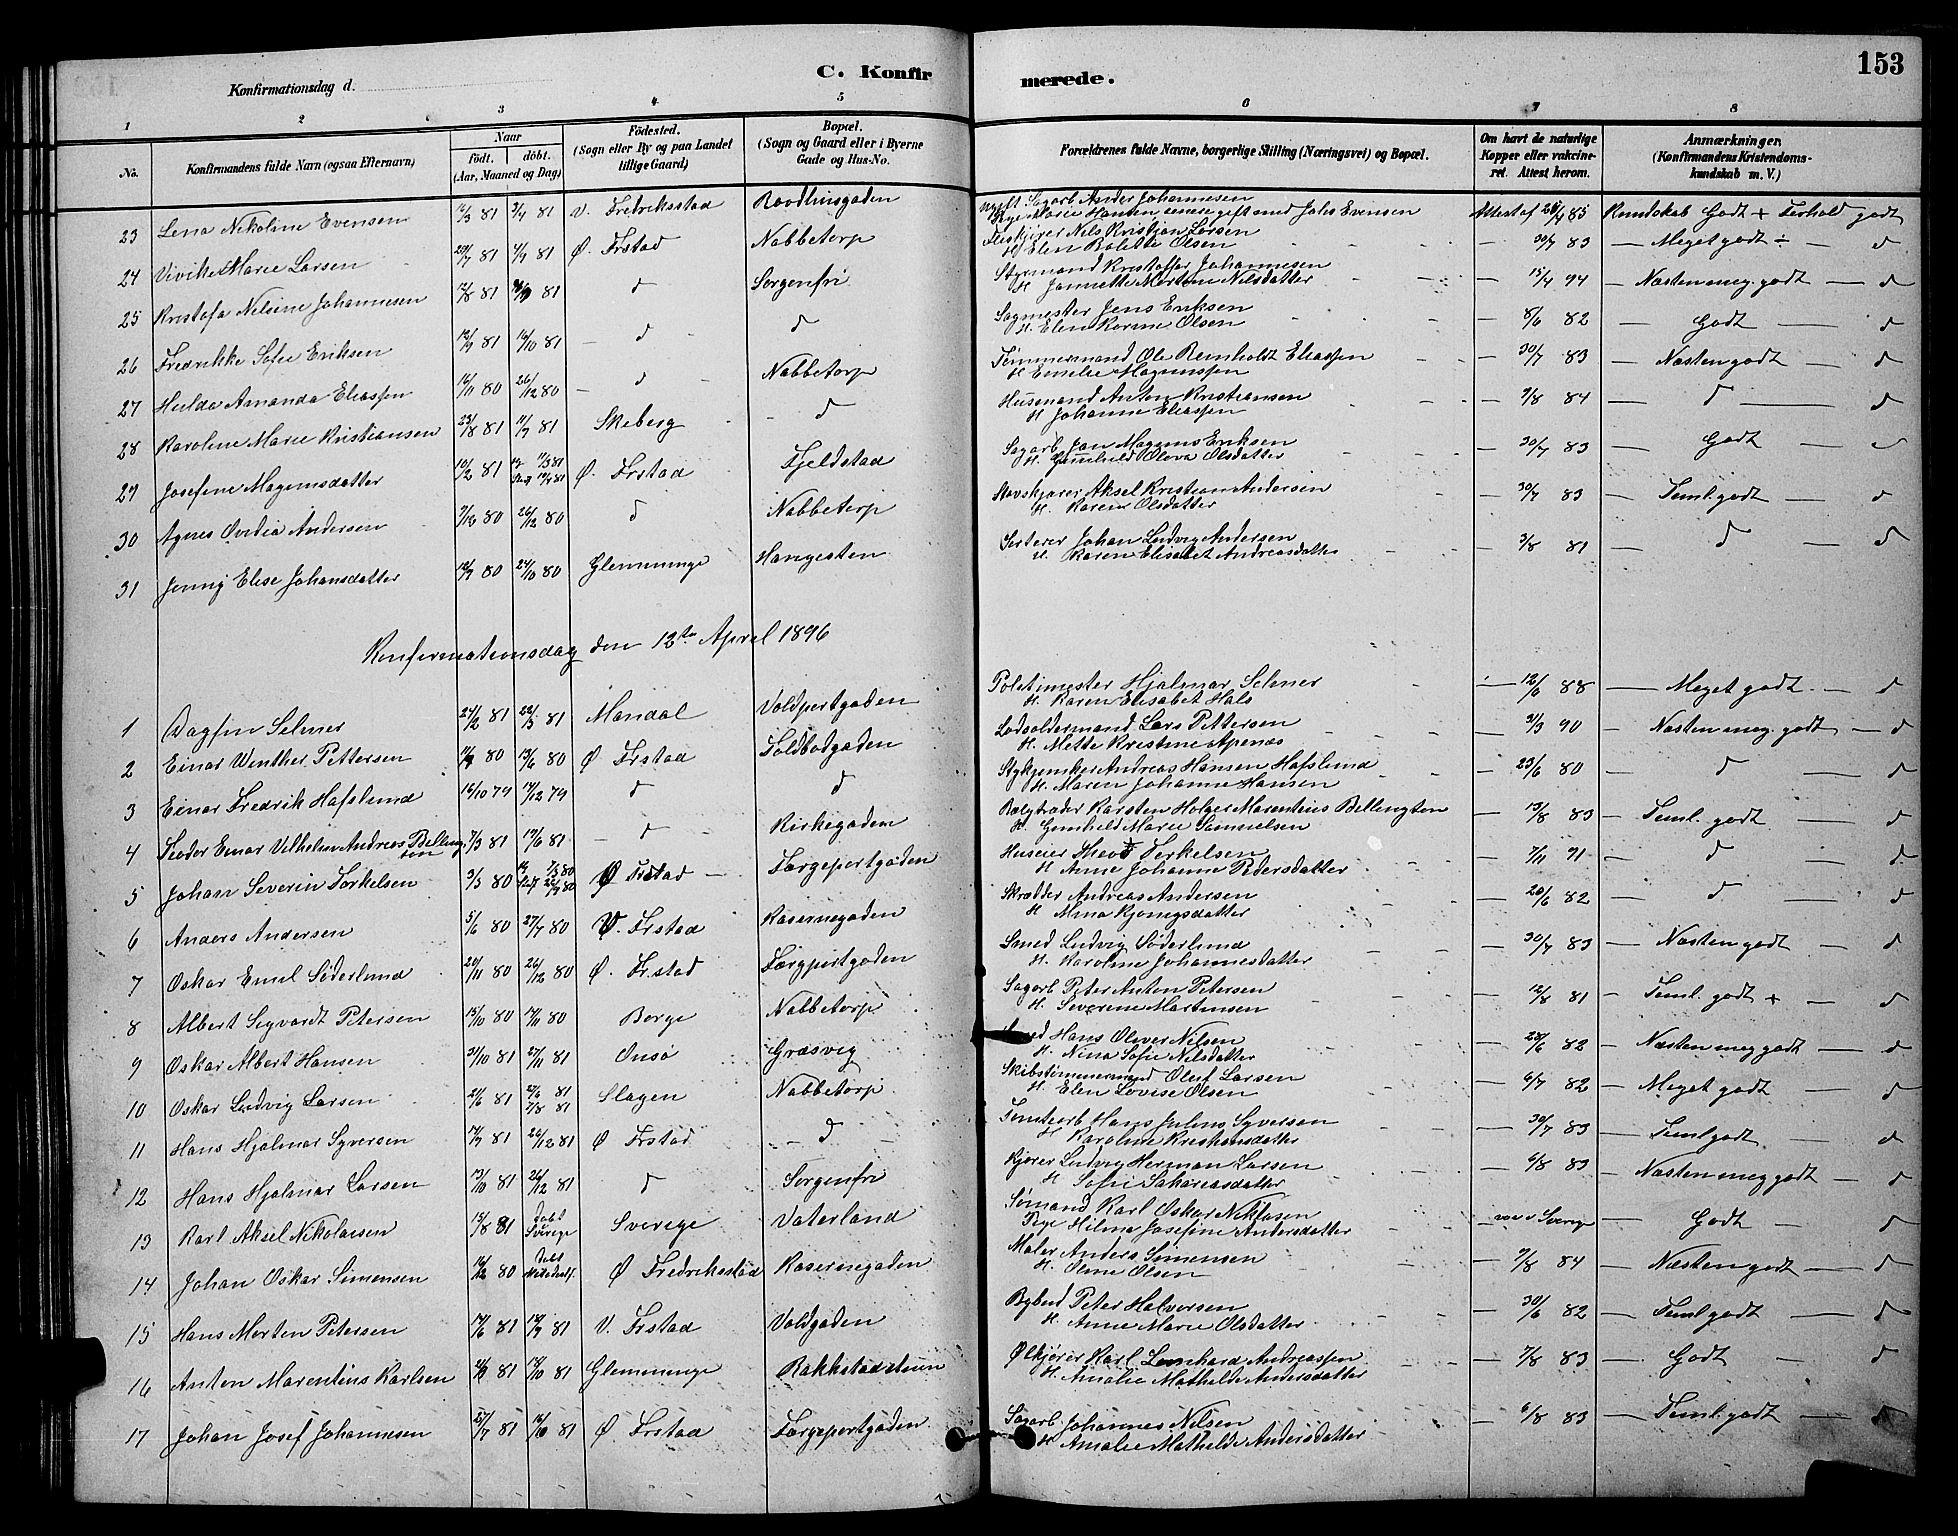 153
Konfirmationsdag d.
C. Konfir
merede.
1 2 3 4 5 6 7 8
No.
Konfirmandens fulde Navn (ogsaa Efternavn)
Naar
födt. döbt.
(Aar, Maaned og Dag)
Födested.
(Sogn eller By og paa Landet
tillige Gaard)
Bopæl.
(Sogn og Gaard eller i Byerne
Gade og Hus-No.
Forældrenes fulde Navne, borgerlige Stilling (Næringsvei) og Bopæl.
Om havt de naturlige
Kopper eller vakcine-
ret. Attest herom.
Anmærkninger
(Konfirmandens Kristendoms-
kundskab m. V.)
23 Lena Nikoline Evensen 81 3/4 81 V. Fredriksstad Sagarb Ander Johannesen
Pige Marie Hansen senere gift med Johs Evensen Attest af 85 Kundskab Godt + Forhold godt
24 Marie Larsen 81 81 Ø. Frstad Nabbetorp Nils Kristian Larsen
H Elen Bolette Olsen 30/7 83 Meget godt ÷ d
25 Kristofa Nilsine Johannesen 12/8 81 81 d Sorgenfri Styrmand Kristoffer Johannesen
H. Jannette Nilsdatter 15/4 94 Næsten meg. godt d
26 Fredrikke Sofie Eriksen 81 16/10 81 d d Sagmester Jens Eriksen
H. Elen Karine Olsen 8/6 82 Godt d
27 Hulda Amanda Eliassen 16/11 80 26/12 80 d Nabbetorp Tømmermand Ole Reinholdt Eliassen
H Emelie Magnussen 30/7 83 Næsten godt d
28 Karoline Marie Kristiansen 81 81 Skeberg d Husmand Anton Kristiansen
H Johanne Eliassen 84 d d
29 Josefine Magnusdatter 10/2 81 Ø. Frstad Fjeldstad Sagarb Jan Magnus Eriksen
H. Gunhild Olava Olsdatter 30/7 83 Godt
30 Agnes Ovidia Andersen 7/12 80 26/12 80 d Nabbetorp Aksel Kristian Andersen
H. Karen Olsdatter 30/7 83 Teml. godt d
31 Jenny Elise Johansdatter 80 24/10 80 Glemminge Johan Ludvig Andersen
H. Karen Elisabet Andreasdatter 3/8 81 d d
Konfirmationsdag den 12te April 1896
1 Dagfin Selmer 24/2 81 81 Mandal Voldportgaden Politimester Hjalmar Selmer
H. Karen Elisabet Hals 12/6 88 Meget godt d
2 Einar Winther Pettersen 80 13/6 80 Ø Frstad Toldbodgaden Lodsoldermand Lars Pettersen
H. Mette Kristine Apenæs 90 Næsten meg. godt d
3 Einar Fredrik Hafslund 16/10 79 14/12 79 d d Andreas Hansen Hafslund
H. Maren Johanne Hansen 23/6 80 d d
4 Teodor Einar Vilhelm Andreas Belling
ton 7/3 81 19/6 81 d Kirkegaden Bælgtræder Karsten Holger Marentius Bellington
H. Gunhild Marie Samuelsen 83 Teml. godt d
5 Johan Severin Torkelsen 3/3 80 Ø Frstad Færgeportgaden Huseier Terkelsen
H Anne Johanne Pedersdatter 7/11 91 d d
6 Anders Andersen 5/6 80 27/7 80 V. Frstad Kasernegaden Skrædder Andreas Andersen
H Mina 20/6 82 d d
7 Oskar Emil Söderlund 20/11 80 26/12 80 Ø. Frstad Færgportgaden Smed Ludvig Söderlund
H. Karoline Johannesdatter 30/7 83 Næsten godt d
8 Albert Sigvardt Petersen 15/10 80 80 Borge Nabbetorp Sagarb Peter Anton Petersen
H. Severine Martinsen 12/8 81 Teml. godt + d
9 Oskar Albert Hansen 31/10 81 27/11 81 Onsö Græsvig Smed Hans Oliver Nilsen
H. Nina Sofie Nilsdatter 28/6 82 Næsten meg godt d
10 Oskar Ludvig Larsen 21/6 81 81
7/8 81 Slagen Nabbetorp Skibstömmermand Oluf Larsen
H. Elen Lovise Olsen 6/7 82 Meget godt d
11 Hans Hjalmar Syversen 81 26/12 81 Ø Frstad d Tomtearb Hans Julius Syversen
H Karoline Kristiansdatter 30/7 83 Teml godt d
12 Hans Hjalmar Larsen 81 26/12 81 d Sorgenfri Kjører Ludvig Herman Larsen
H Sofie Sakariasdatter 6/8 83 Næsten meg godt d
13 Karl Aksel Nikolaisen 15/8 81 döbt
Sverige Sverige Vaterland Sømand Karl Oskar Niklasen
Pige Hilma Josefine Andersdatter vac i Sverige Godt d
14 Johan Oskar Simensen 80 Döbt
Metodistf. Ø Fredriksstad Kasernegaden Maler Anders Simensen
H. Oline Olsen 84 Næsten godt d
15 Hans Morten Petersen 81 81 V. Frstad Voldgaden Bybud Peter Halvorsen
H. Anne Marie Olsdatter 30/6 82 Teml godt d
16 Anton Marentius Karlsen 81 81 Glemminge Ølkjører Karl Lenhard Andreassen
H Amalie Mathilde Andersdatter 7/8 83 Godt d
17 Johan Josef Johannesen 27/7 81 16/10 81 Ø Frstad Færgeportgaden Sagarb Johannes Nilsen
H Amalie Mathilde Andersdatter 6/8 83 Teml. godt d